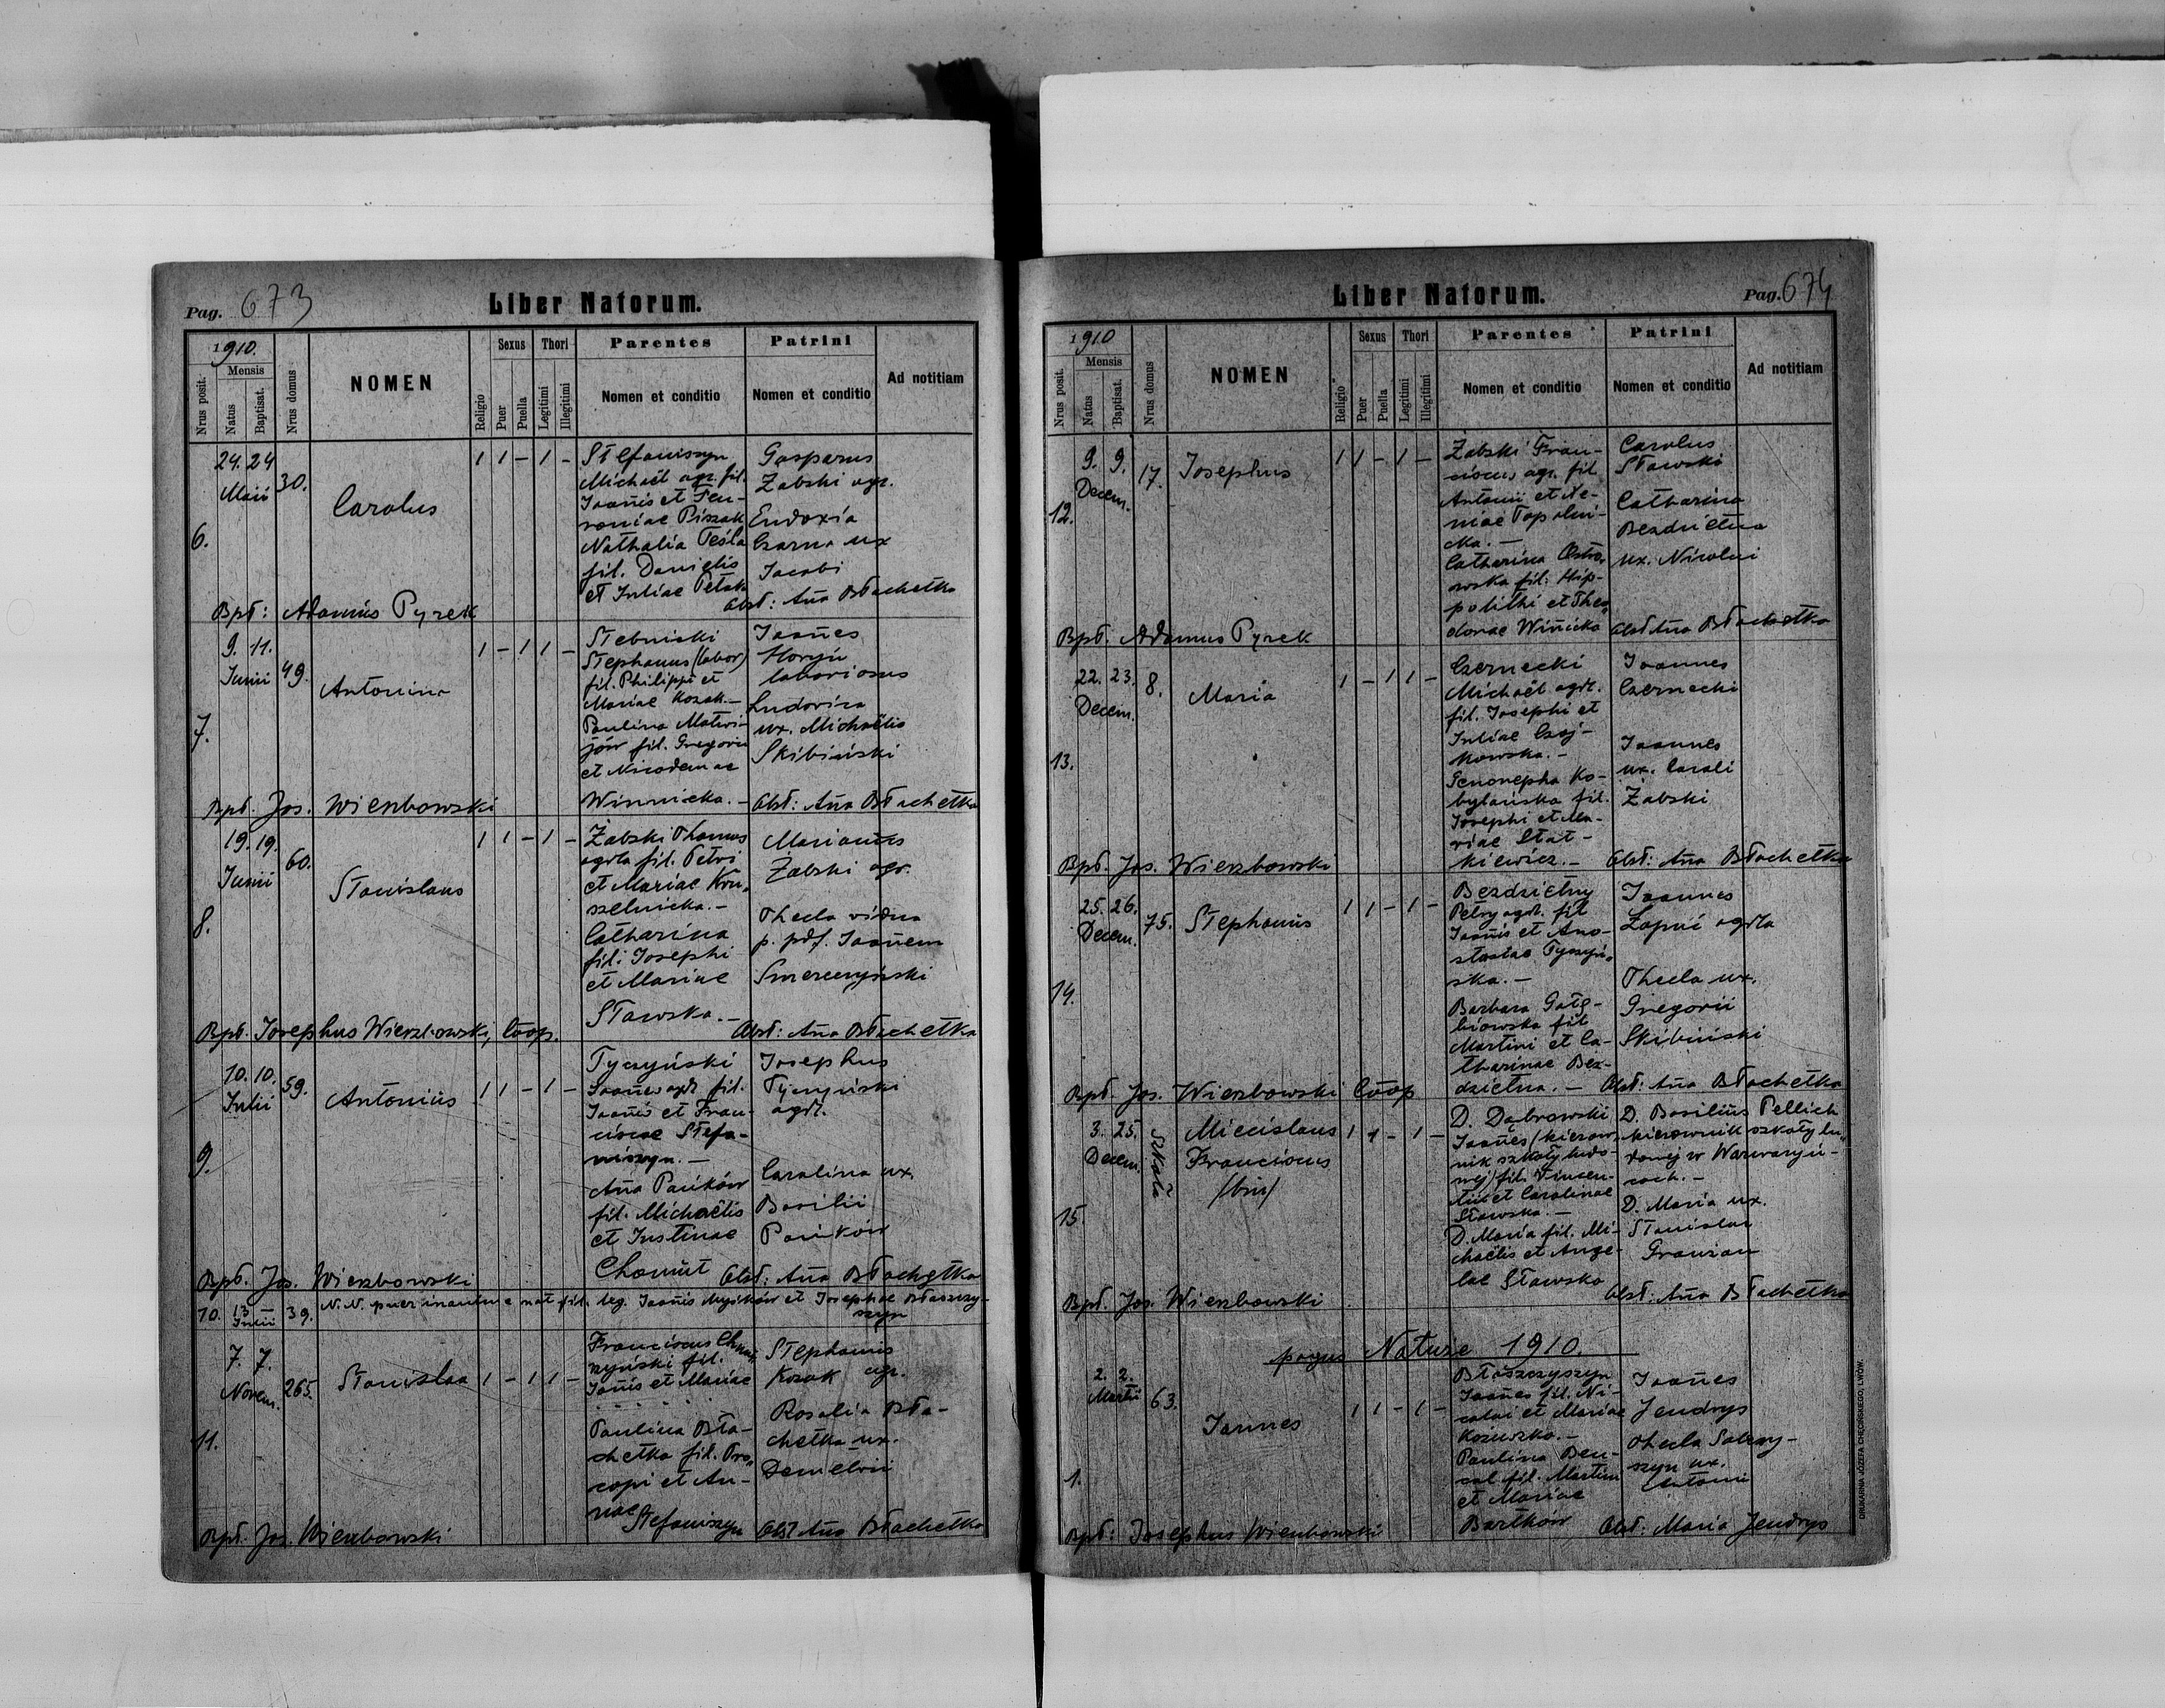 Pag. 673
Liber Natorum.
1910.
Nrus posit.
Mensis
Natus
Baptisat.
Nrus domus
NOMEN
Religio
Sexus
Puer
Puella
Thori
Legitimi
Illegitimi
Parentes
Nomen et conditio
Patrini
Nomen et conditio
Ad notitiam
6.
24. 24
Maii
30.
Carolus
1 1 - 1 -
Stefaniszyn
Michaël agr. fil.
Joañis et
Piszak
Nathalia Teśla
fil. Danielis
et Juliae Petak
Gasparus
Żabski agr.
Eudoxia
Czarna ux
Jacobi
Obst: Aña Błachetka
Bpt: Adamus Pyrek
7.
9. 11.
Junii
49.
Antonina
1 - 1 1 -
Stebniski
Stephanus (labor)
fil. Philippi et
Mariae Kozak.-
Paulina Matwi-
jów fil. Gregorii
et Nicodemae
Winnicka.-
Joañes
Horyń
laboriosus
Ludovica
ux. Michaëlis
Skibiński
Obst: Aña Błachetka
Bpt. Jos. Wierzbowski
8.
19. 19.
Junii
60.
Stanislaus
1 1 - 1 -
Żabski Thomas
agrla fil. Petri
et Mariae Kru-
szelnicka.-
Catharina
fil: Josephi
et Mariae
Stawska.-
Marianus
Żabski agr.
Thecla vidua
p. pdf. Joañem
Smereczyński
Obst: Aña Błachetka
Bpt. Josephus Wierzbowski, Coop.
9.
10. 10.
Julii
59.
Antonius
1 1 - 1 -
Tyczyński
Joañes agr. fil.
Joañis et Fran-
ciscae Stefa-
niszyn.-
Aña Pańków
fil. Michaëlis
et Justinae
Chomut
Josephus
Tyczyński
agrl.
Carolina ux.
Basilii
Pańków
Obst: Aña Błachetka
Bpt. Jos. Wierzbowski
10. 13 - Julii 39. N. N. puer inanime nat. fil. leg. Joañis Mysków et Josephae Błaszczy-
szyn
11.
7. 7.
Novem.
265.
Stanislaa
1 - 1 1 -
Franciscus
fil.
Joñis et Mariae
Paulina Bła-
chetka fil. Pro-
copi et An-
nae
Stefaniszyn
Stephanus
Kozak agr.
Rosalia Bła-
chetka ux.
Demetrii
Obst Aña Błachetka
Bpt. Jos. Wierzbowski
Liber Natorum.
Pag. 674
1910
Nrus posit.
Mensis
Natus
Baptisat.
Nrus domus
NOMEN
Religio
Sexus
Puer
Puella
Thori
Legitimi
Illegitimi
Parentes
Nomen et conditio
Patrini
Nomen et conditio
Ad notitiam
12.
9. 9.
Decem.
17.
Josephus
1 1 - 1 -
Żabski Fran-
ciscus agr. fil
Antonii et
Topolni-
cka.-
Catharina Ostro-
wska fil. Hip-
polithi et Theo-
dorae Winicka
Carolus
Stawski
Catharina
Bezdzietna
ux. Nicolai
Obst Aña Błachetka
Bpt. Adamus Pyrek
13.
22. 23.
Decem.
8.
Maria
1 - 1 1 -
Czernecki
Michaël agrl.
fil. Josephi et
Juliae Czaj-
kowska.-
Genovepha Ko-
bylańska fil.
Josephi et Ma-
riae Stat-
kiewicz.-
Joannes
Czernecki
Joannes
ux. Caroli
Żabski
Obst: Aña Błachetka
Bpt. Jos. Wierzbowski
14.
25. 26.
Decem.
75.
Stephanus
1 1 - 1 -
Bezdzietny
Petry agrl. fil
Joañis et Ana-
stasiae Tyczyń-
ska.-
Barbara Gołę-
biowska fil
Martini et Ca-
tharinae Bez-
dzietna.-
Joannes
Łapuć agrla
Thecla ux.
Gregorii
Skibiński
Obst: Aña Błachetka
Bpt. Jos. Wierzbowski Coop
15.
3. 25.
Decem.
Szkoła
Miecislaus
Franciscus
/bin/
1 1 - 1 -
D. Dąbrowski
Joañes (kierow-
nik szkoły ludo-
wej) fil. Vincen-
tii et Carolinae
Stawska.-
D. Maria fil. Mi-
chaëlis et Ange-
lae Stawska
D. Basilius Pellich
kierownik szkoły lu-
dowej w Warwaryń-
cach.-
D. Maria ux.
Stanislai
Obst: Aña Błachetka
Bpt. Jos. Wierzbowski
pagus Natuże 1910.
1.
2. 2.
Martii
63.
Joannes
1 1 - 1 -
Błaszczyszyn
Joañes fil. Ni-
colai et Mariae
Kozuszko.-
Paulina Ben-
cal fil. Martini
et Mariae
Bartków
Joañes
Jendrys
Thecla
szyn ux.
Antonii
Obst: Maria Jendrys
Bpt: Josephus Wierzbowski
DRUKARNIA JÓZEFA CHĘCIŃSKIEGO, LWÓW.